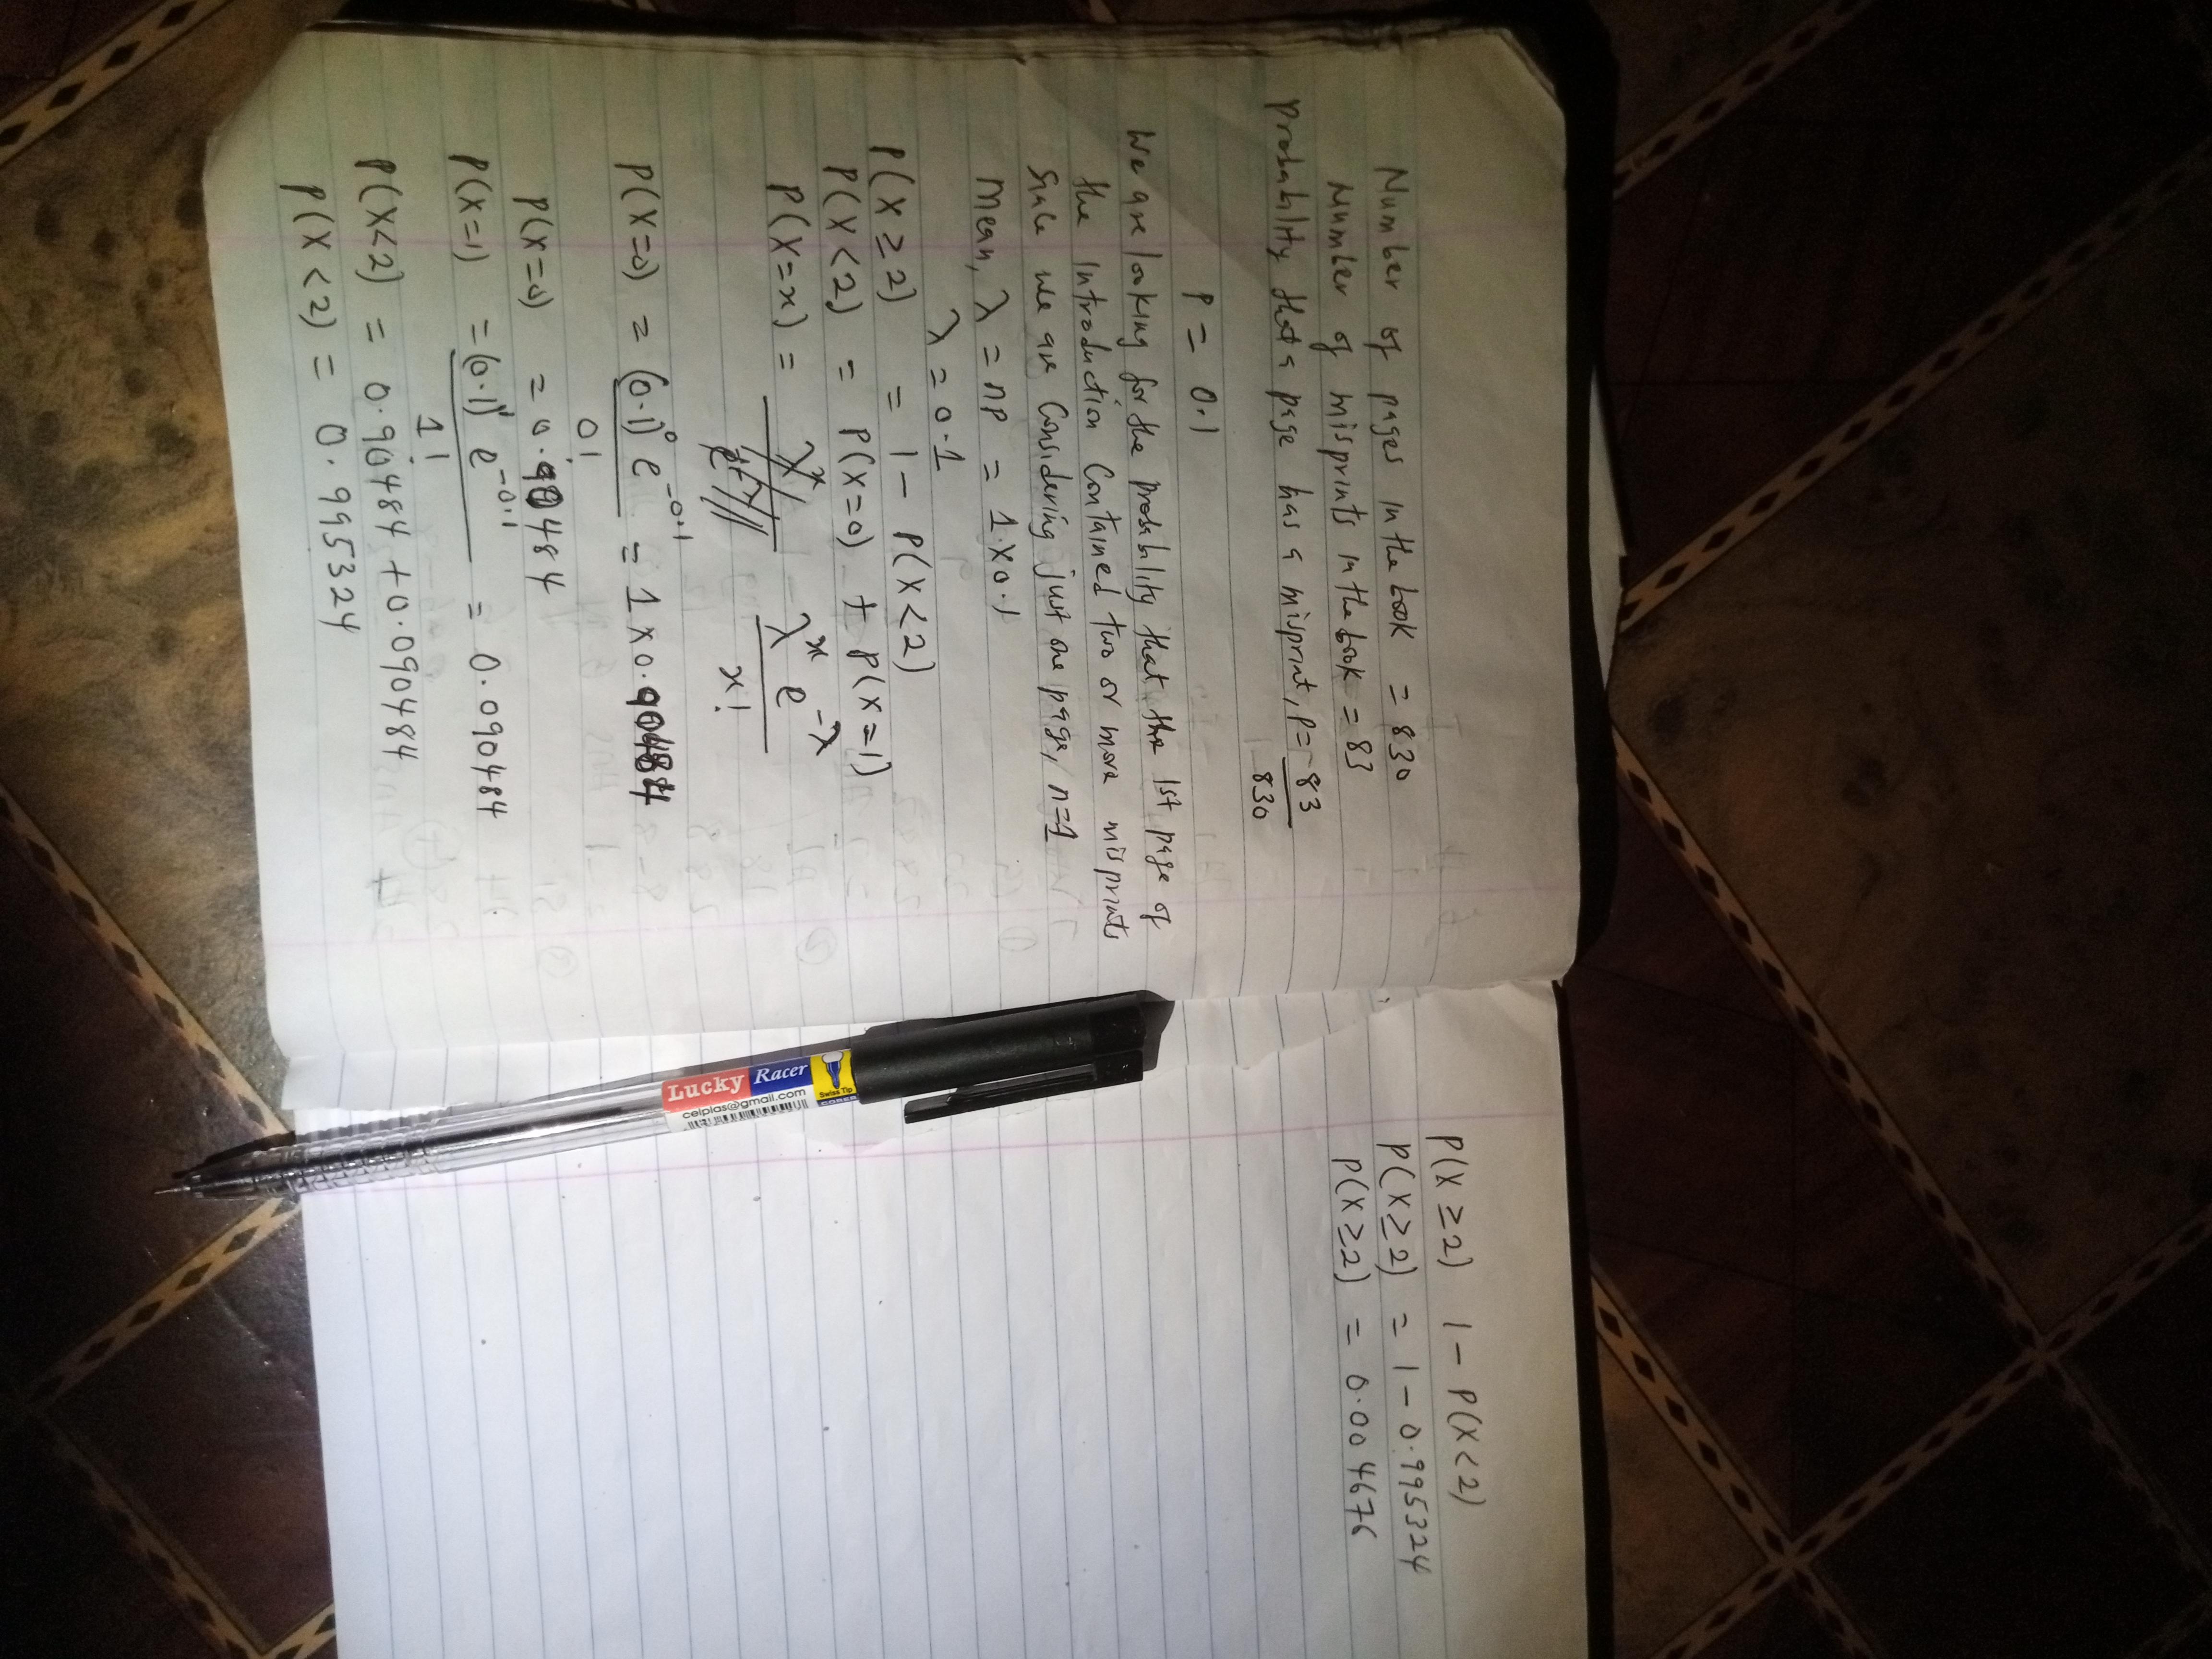 Number of pages in the book = 830
Number of misprints in the book = 83
Probability that a page has a misprint, P = 83
830
P = 0.1
We are looking for the probability that the 1st page of
the introduction contained two or more misprints
Since we are considering just one page, n=1
Mean, λ = np = 1 x 0.1
λ = 0.1
P(X ≥ 2) = 1 - P(X < 2)
P(X < 2) = P(X=0) + P(X=1)
P(X=x) = λ^x e^-λ
x!
P(X=0) = (0.1)^0 e^-0.1 = 1 x 0.90484
0!
P(X=0) = 0.90484
P(X=1) = (0.1)^1 e^-0.1 = 0.090484
1!
P(X<2) = 0.90484 + 0.090484
P(X < 2) = 0.995324
P(X ≥ 2) 1 - P(X < 2)
P(X ≥ 2) = 1 - 0.995324
P(X ≥ 2) = 0.004676
Lucky Racer
celplas@gmail.com
Swiss Tip